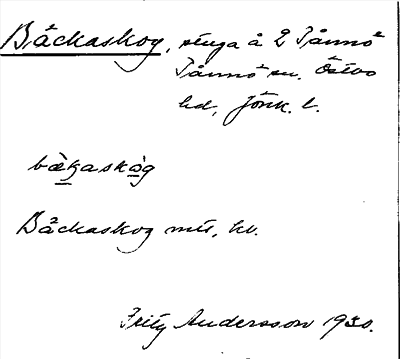 Bäckaskog, stuga å 2 Tånnö
Tånnö sn. Östbo
hd, Jönk. l.
bæ̀kaskò̱g
Bäckaskog mtl, hv.
Fritz Andersson 1930.